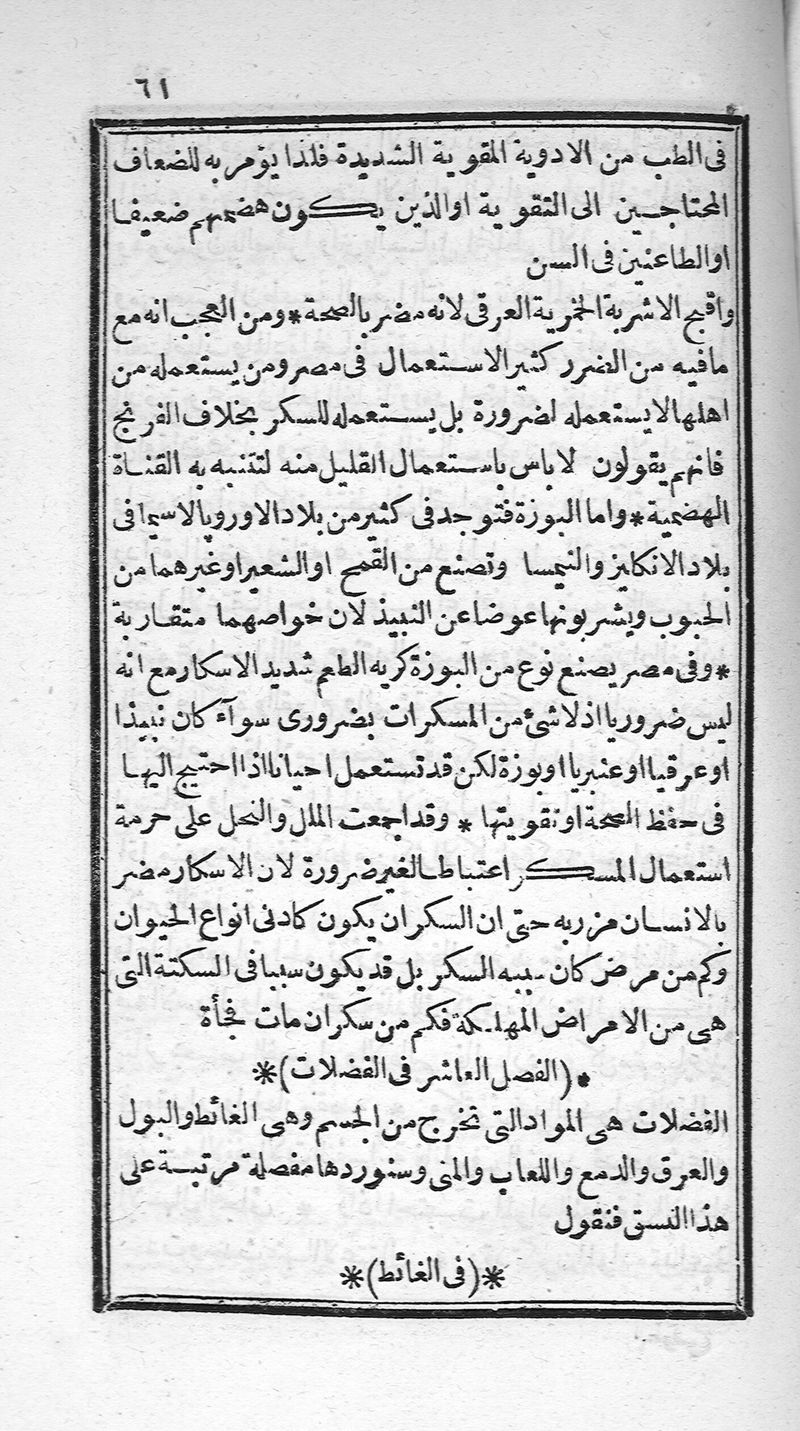 ٦١
فى الطب من الادوية المقوية الشديدة فلذا يؤمر به للضعاف
المحتاجين الى التقوية او الذين يكون هضمهم ضعيفا
او الطاعنين فى السن
واقبح الاشربة الخمرية العرقى لانه مضر بالصحة * ومن العجب انه مع
ما فيه من الضرر كثير الاستعمال فى مصر ومن يستعمله من
اهلها لا يستعمله لضرورة بل يستعمله للسكر بخلاف الفرنج
فانهم يقولون لا باس باستعمال القليل منه لتتنبه به القناة
الهضمية * واما البوزة فتوجد فى كثير من بلاد الاوروپا لاسيما فى
بلاد الانكليز والنيمسا وتصنع من القمح او الشعير او غيرهما من
الحبوب ويشربونها عوضا عن النبيذ لان خواصهما متقاربة
* وفى مصر يصنع نوع من البوزة كريه الطعم شديد الاسكار مع انه
ليس ضروريا اذ لا شئ من المسكرات بضرورى سوآء كان نبيذا
او عرقيا او عنبريا او بوزة لكن قد تستعمل احيانا اذا احتيج اليها
فى حفظ الصحة او تقويتها * وقد اجمعت الملل والنحل على حرمة
استعمال المسكر اعتباطا لغير ضرورة لان الاسكار مضر
بالانسان مزر به حتى ان السكران يكون كادنى انواع الحيوان
وكم من مرض كان سببه السكر بل قد يكون سببا فى السكتة التى
هى من الامراض المهلكة فكم من سكران مات فجأة
* (الفصل العاشر فى الفضلات) *
الفضلات هى المواد التى تخرج من الجسم وهى الغائط والبول
والعرق والدمع واللعاب والمنى وسنوردها مفصلة مرتبة على
هذا النسق فنقول
* (فى الغائط) *